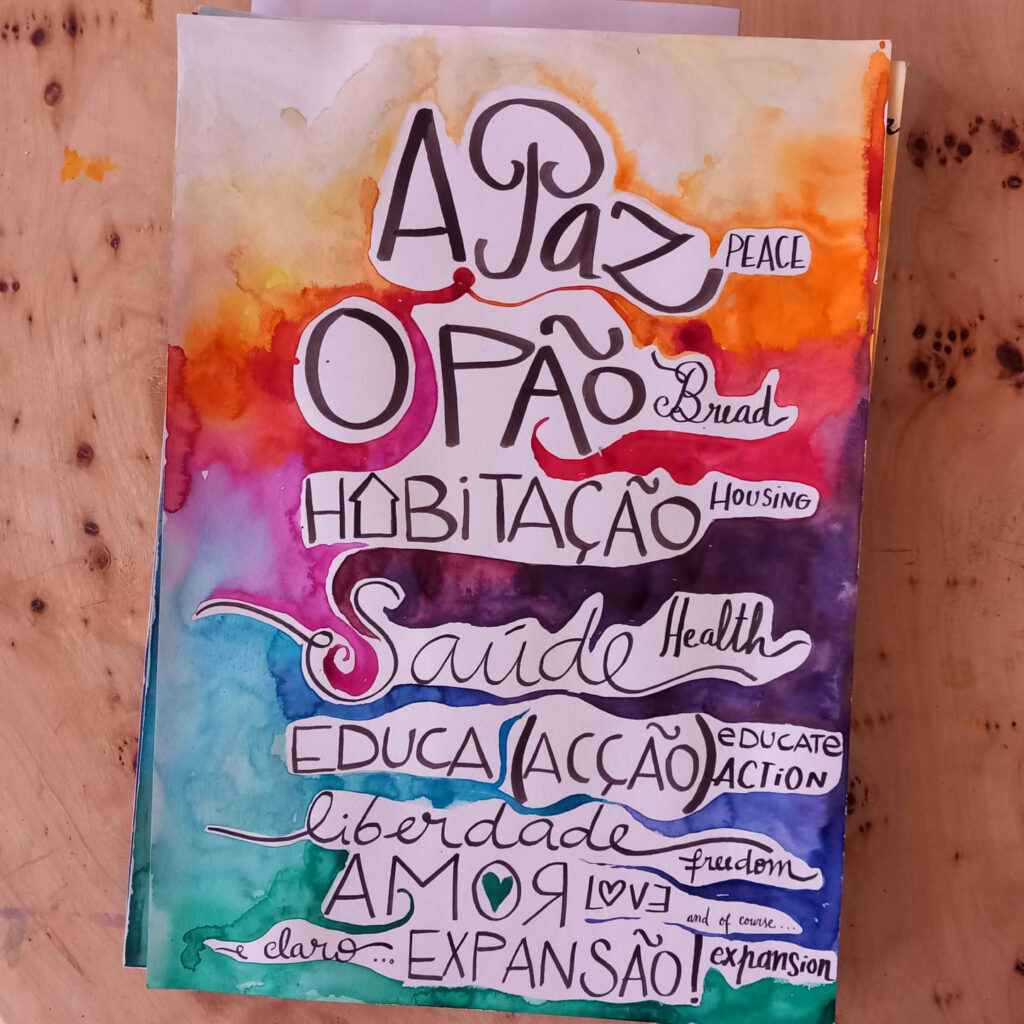 A Paz PEACE
O PÃO Bread
HABiTAÇÃO HOUSING
Saúde Health
EDUCA(ACÇÃO) eDUCATE
ACTiON
liberdade freedom
AMOR LOVE
and of course...
e claro... EXPANSÃO! expansion